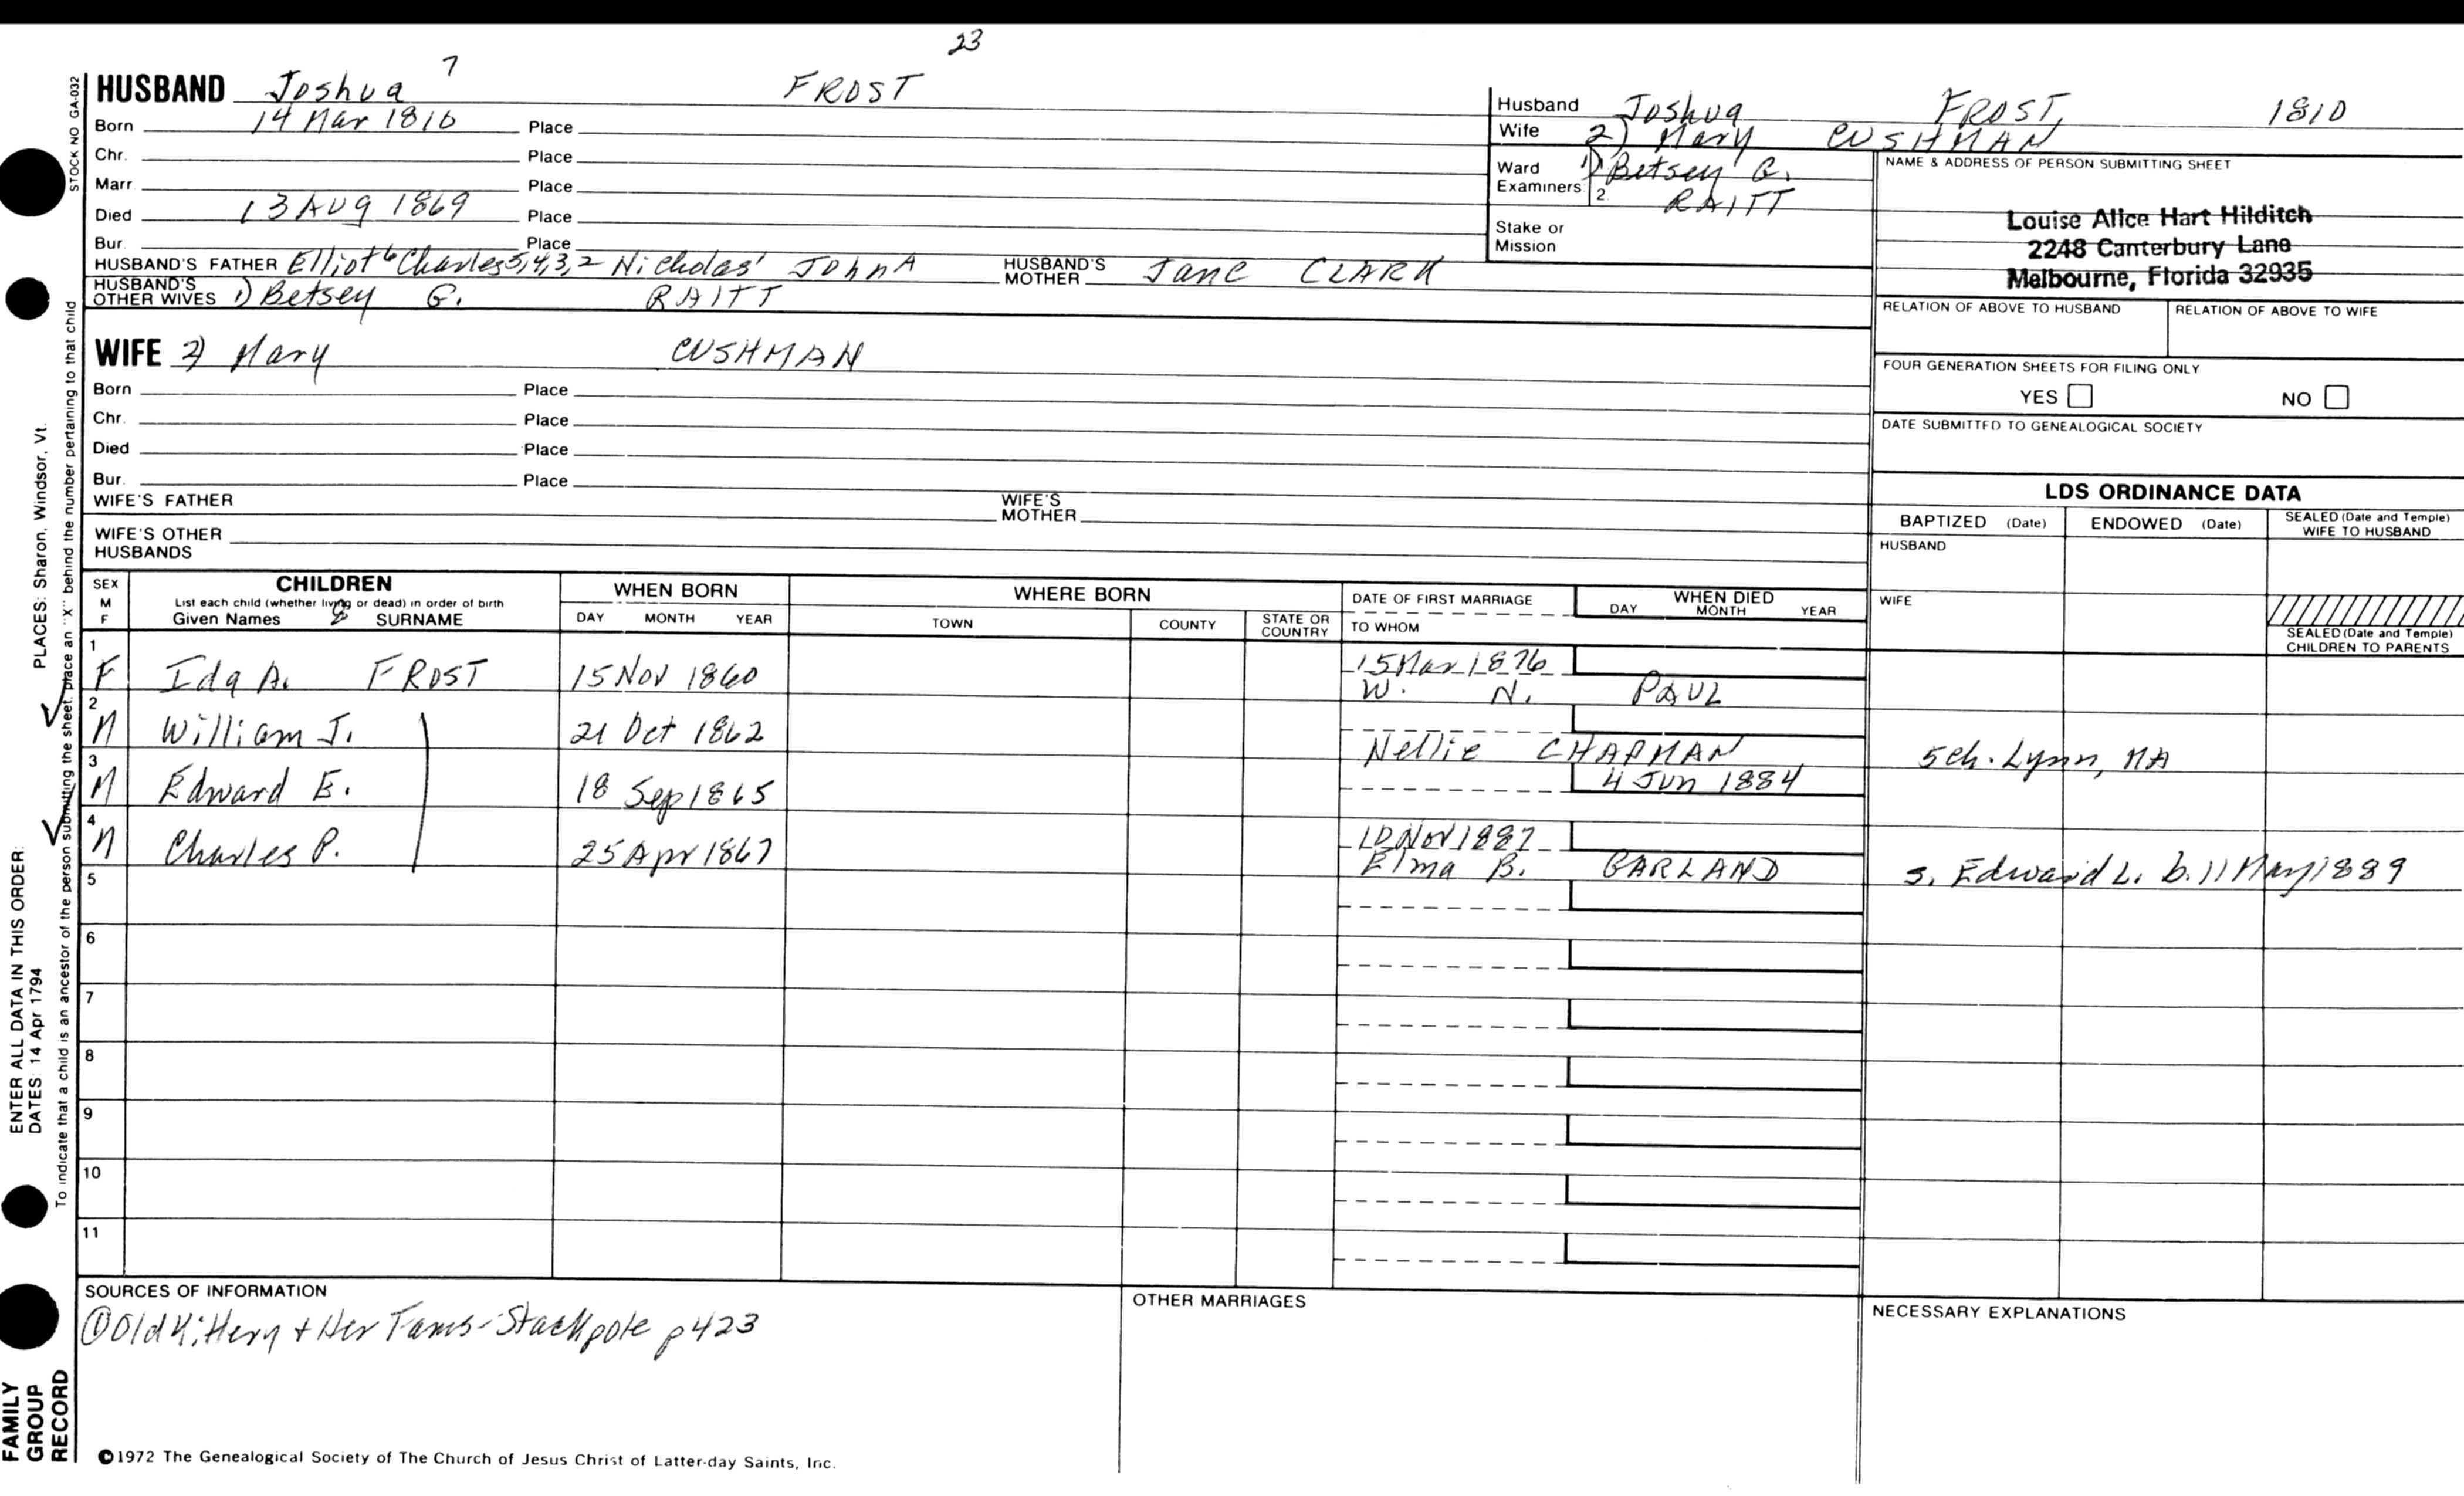 23
HUSBAND Joshua 7 FROST
Born 14 Mar 1810 Place
Chr. Place
Marr. Place
Died 13 AUG 1869 Place
Bur. Place
HUSBAND'S FATHER Elliot 6 Charles 5,4,3,2 Nicholas 1 John A HUSBAND'S MOTHER Jane CLARK
HUSBAND'S OTHER WIVES 1) Betsey G. RAITT
WIFE 2) Mary CUSHMAN
Born Place
Chr. Place
Died Place
Bur. Place
WIFE'S FATHER WIFE'S MOTHER
WIFE'S OTHER HUSBANDS
Husband Joshua FROST, 1810
Wife 2) Mary CUSHMAN
Ward 1) Betsey G.
Examiners: 2. RAITT
Stake or Mission
NAME & ADDRESS OF PERSON SUBMITTING SHEET
Louise Alice Hart Hilditch
2248 Canterbury Lane
Melbourne, Florida 32935
RELATION OF ABOVE TO HUSBAND RELATION OF ABOVE TO WIFE
FOUR GENERATION SHEETS FOR FILING ONLY
YES NO
DATE SUBMITTED TO GENEALOGICAL SOCIETY
LDS ORDINANCE DATA
BAPTIZED (Date) ENDOWED (Date) SEALED (Date and Temple) WIFE TO HUSBAND
HUSBAND
WIFE
SEALED (Date and Temple) CHILDREN TO PARENTS
SEX M F CHILDREN WHEN BORN WHERE BORN DATE OF FIRST MARRIAGE WHEN DIED
List each child (whether living or dead) in order of birth
Given Names SURNAME DAY MONTH YEAR TOWN COUNTY STATE OR COUNTRY TO WHOM DAY MONTH YEAR
1 F Ida A. FROST 15 Nov 1860 15 Mar 1876
W. N. PAUL
2 M William J. 21 Oct 1862
Nellie CHAPMAN 5 ch. Lynn, MA
3 M Edward E. 18 Sep 1865 4 Jun 1884
4 M Charles P. 25 Apr 1867 10 Nov 1887
Elma B. GARLAND s. Edward L. b. 11 May 1889
5
6
7
8
9
10
11
SOURCES OF INFORMATION
① Old Kittery + Her Fams - Stackpole p423
OTHER MARRIAGES
NECESSARY EXPLANATIONS
©1972 The Genealogical Society of The Church of Jesus Christ of Latter-day Saints, Inc.
STOCK NO GA-032
To indicate that a child is an ancestor of the person submitting the sheet, place an "X" behind the number pertaining to that child
ENTER ALL DATA IN THIS ORDER:
DATES: 14 Apr 1794 PLACES: Sharon, Windsor, Vt.
FAMILY
GROUP
RECORD